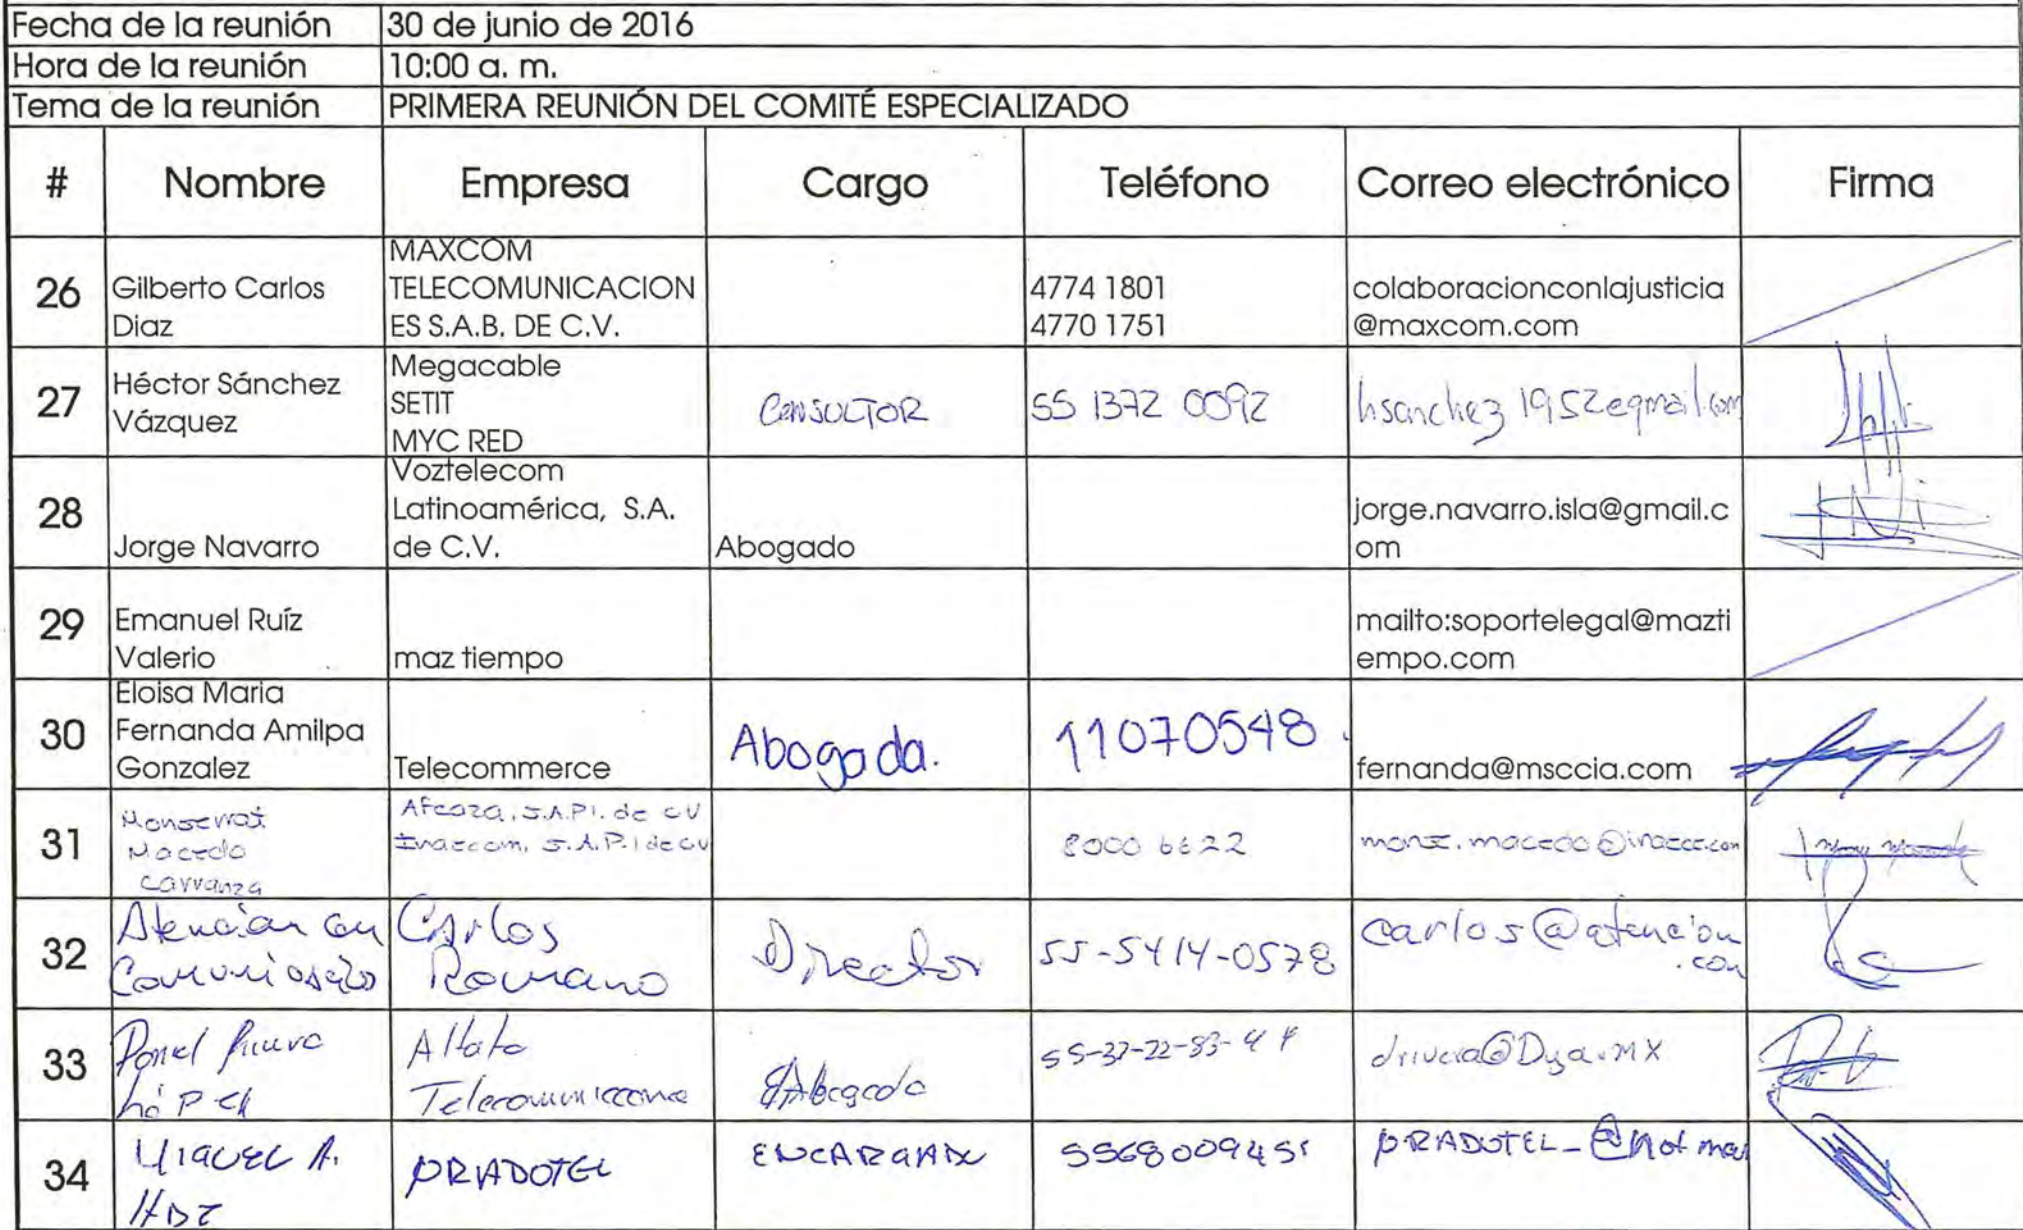 Fecha de la reunión 30 de junio de 2016
Hora de la reunión 10:00 a. m.
Tema de la reunión PRIMERA REUNIÓN DEL COMITÉ ESPECIALIZADO
# Nombre Empresa Cargo Teléfono Correo electrónico Firma
26
Gilberto Carlos
Diaz
MAXCOM
TELECOMUNICACION
ES S.A.B. DE C.V.
4774 1801
4770 1751
colaboracionconlajusticia
@maxcom.com
27
Héctor Sánchez
Vázquez
Megacable
SETIT
MYC RED
CONSULTOR
55 1372 0092
hsanchez1952@gmail.com
28
Jorge Navarro
Voztelecom
Latinoamérica, S.A.
de C.V.
Abogado
jorge.navarro.isla@gmail.c
om
29
Emanuel Ruíz
Valerio
maz tiempo
mailto:soportelegal@mazti
empo.com
30
Eloisa Maria
Fernanda Amilpa
Gonzalez
Telecommerce
Abogada.
11070548.
fernanda@msccia.com
31
Monserrat
Macedo
Carranza
S.A.P.I. de CV
S.A.P.I de CV
8000 6622
32
Atención en
Carlos
Romano
Director
55-5414-0578
carlos@atencion
.com
33
López
Telecomunicciones
Abogado
drivera@Dya.MX
34
MIGUEL A.
HDZ
PRADOTEL
ENCARGADO
5568009451
PRADOTEL_@hotmai